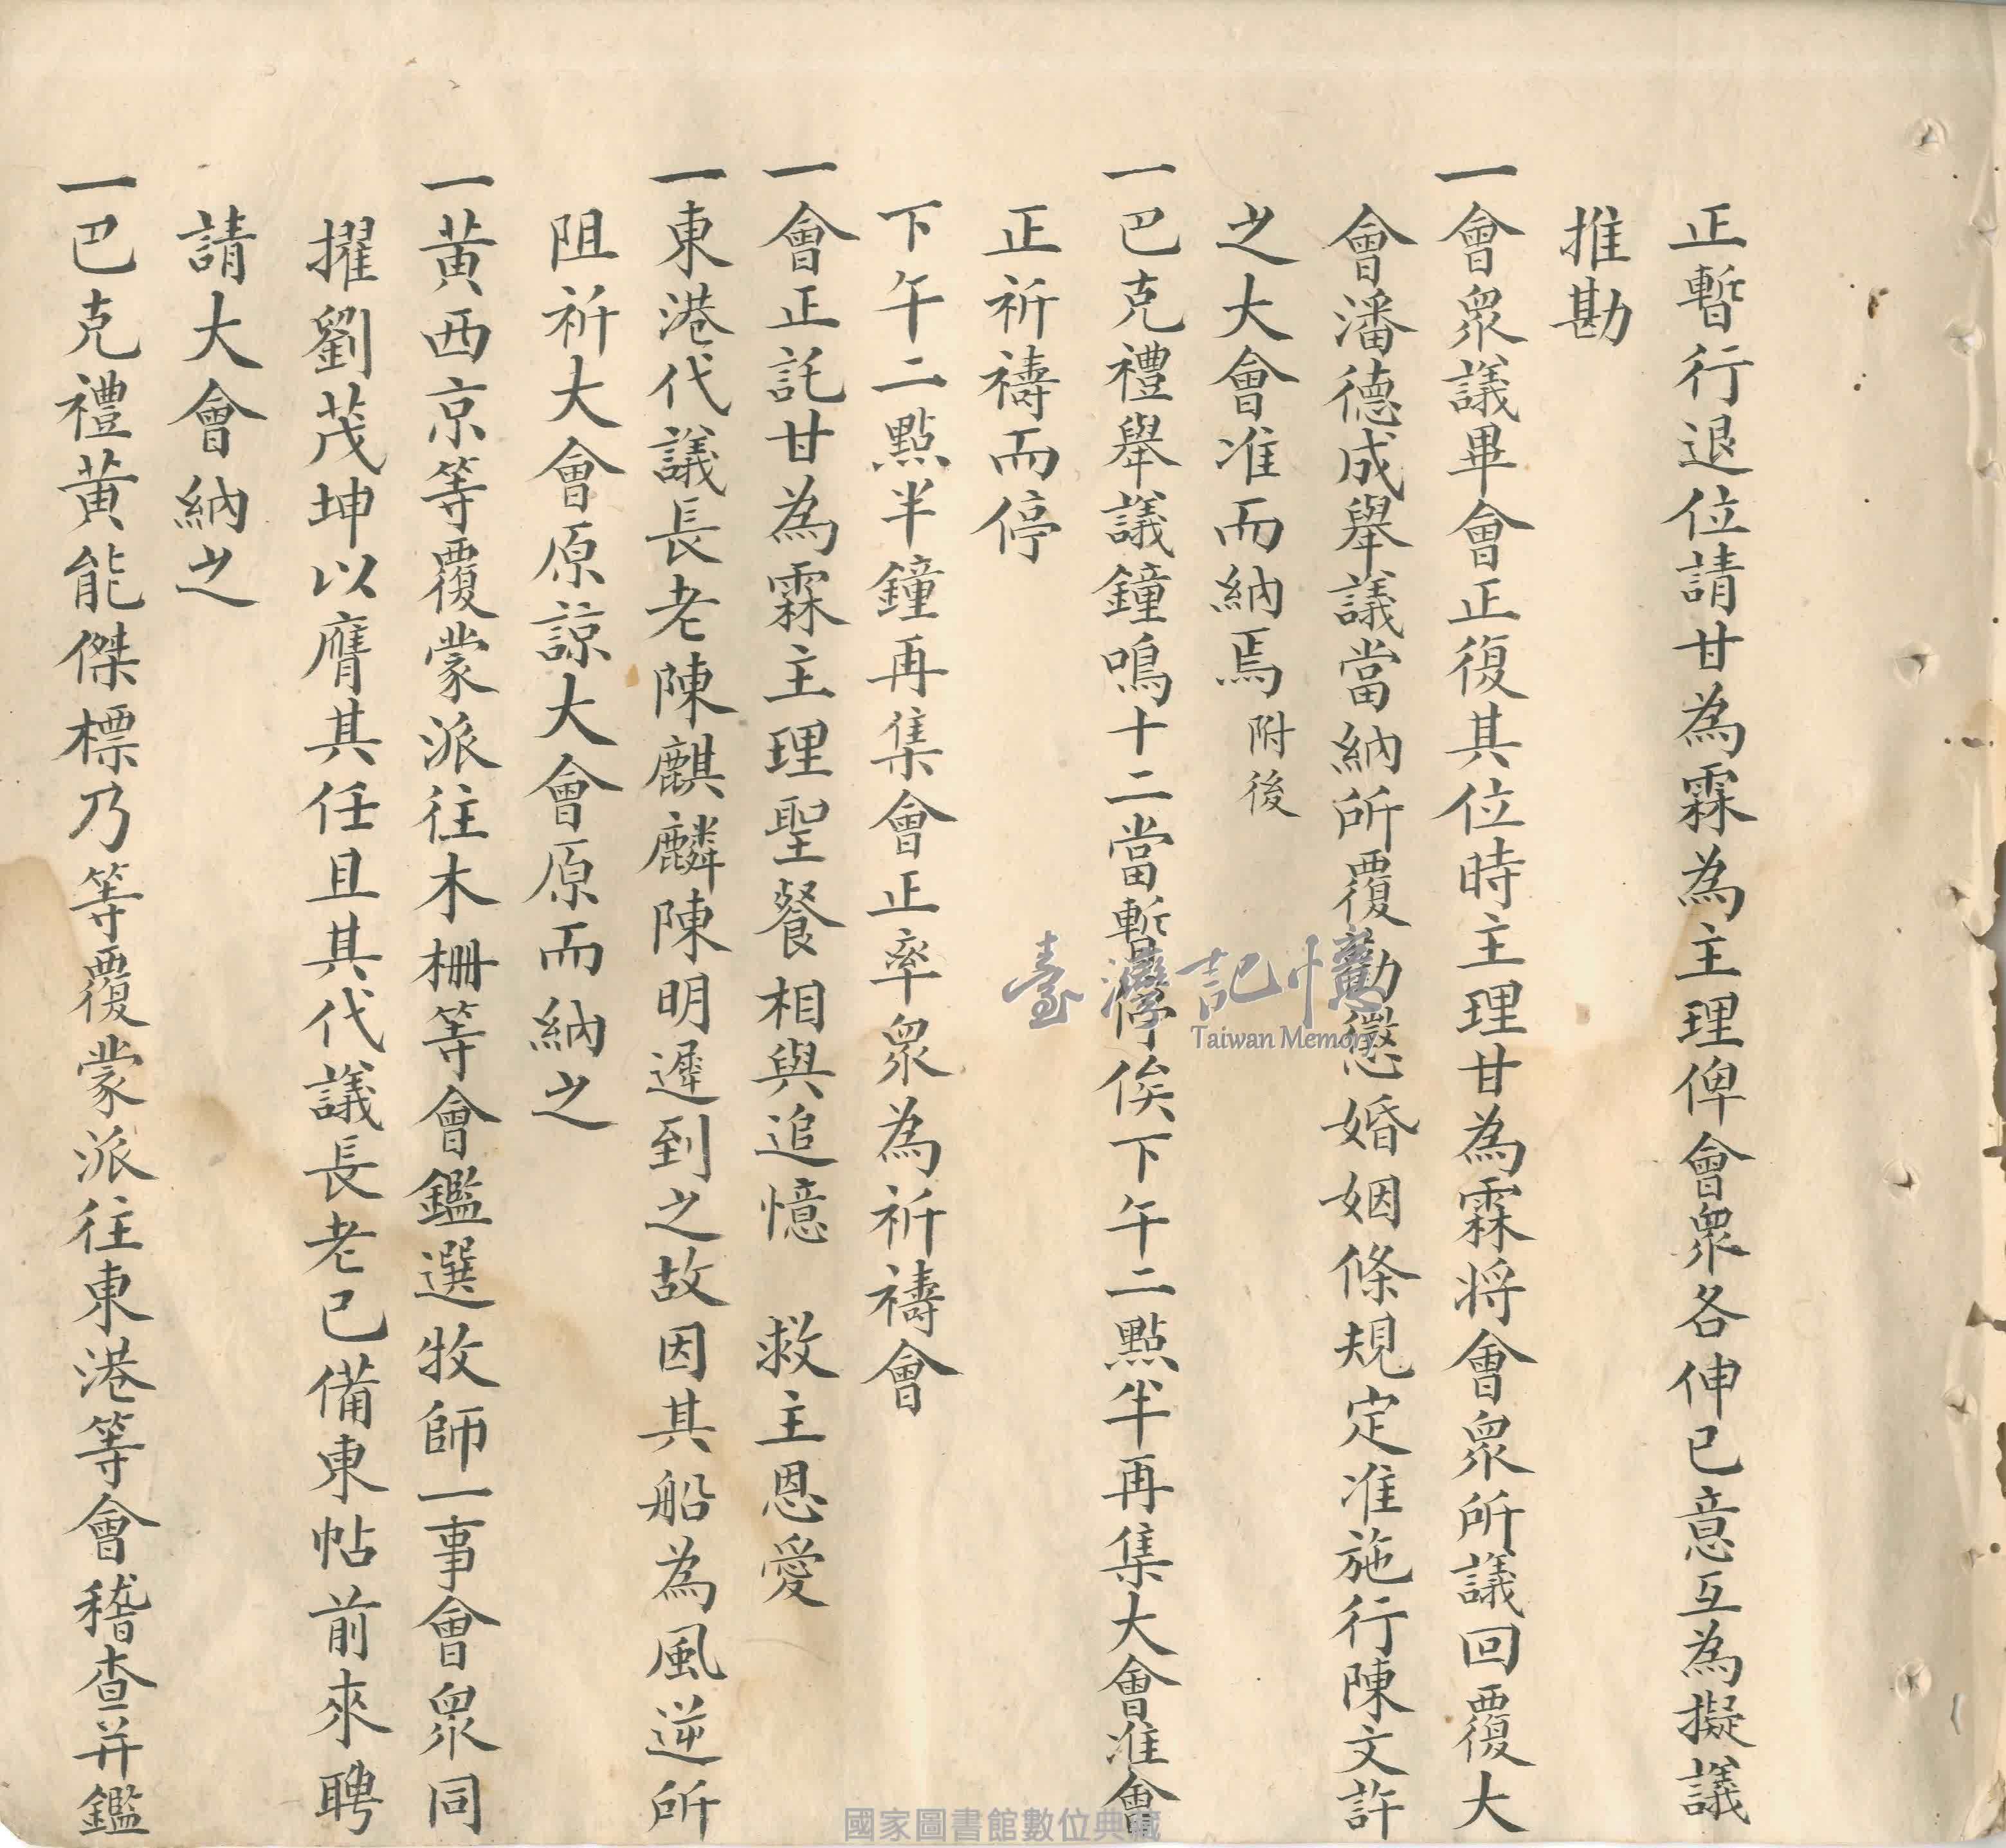 正暫行退位請甘為霖為主理俾會眾各伸已意互為擬議
推勘
一會眾議畢會正復其位時主理甘為霖將會眾所議回覆大
會潘德成舉議當納所覆勸懲婚姻條規定准施行陳文許
之大會准而納焉附後
一巴克禮舉議鐘鳴十二當暫停俟下午二點半再集大會准會
正祈禱而停
下午二點半鐘再集會正率眾為祈禱會
一會正託甘為霖主理聖餐相與追憶 救主恩愛
一東港代議長老陳麒麟陳明遲到之故因其船為風逆所
阻祈大會原諒大會原而納之
一黃西京等覆蒙派往木柵等會鑑選牧師一事會眾同
擢劉茂坤以膺其任且其代議長老已備東帖前來聘
請大會納之
一巴克禮黃能傑標乃等覆蒙派往東港等會稽查并鑑
臺灣記憶
Taiwan Memory
國家圖書館數位典藏